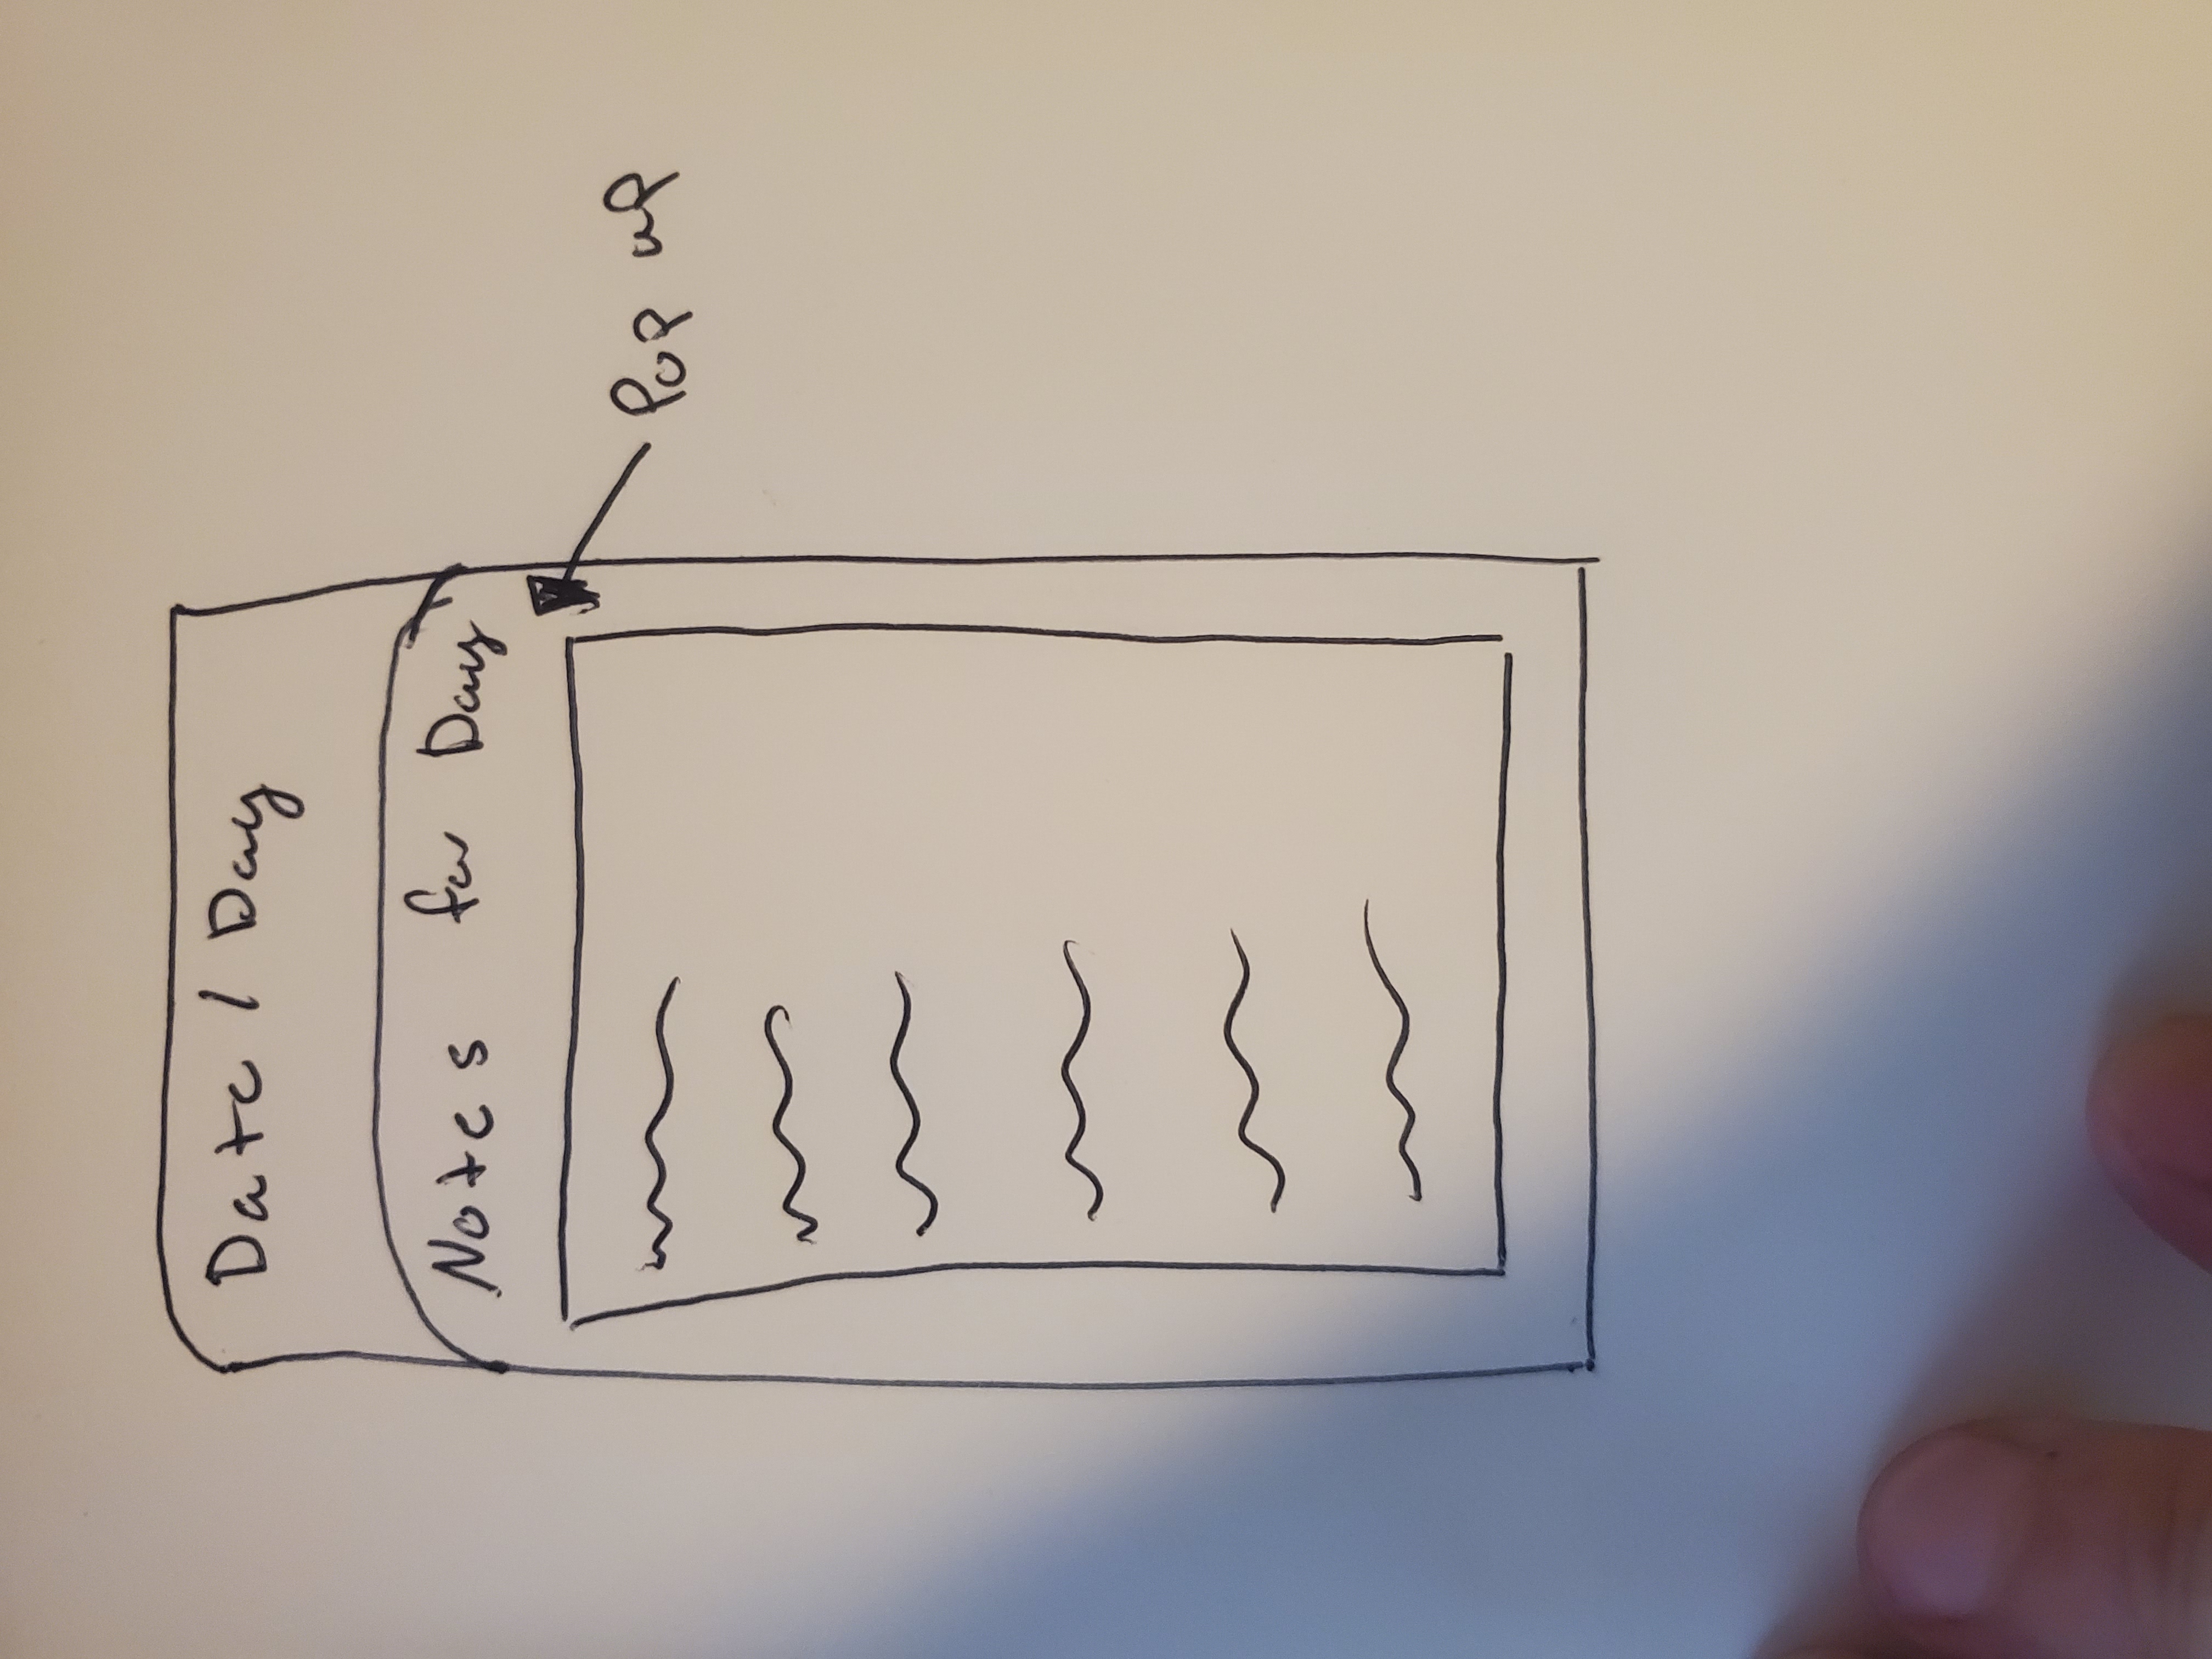 Date / Day
Notes for Day
Pop up